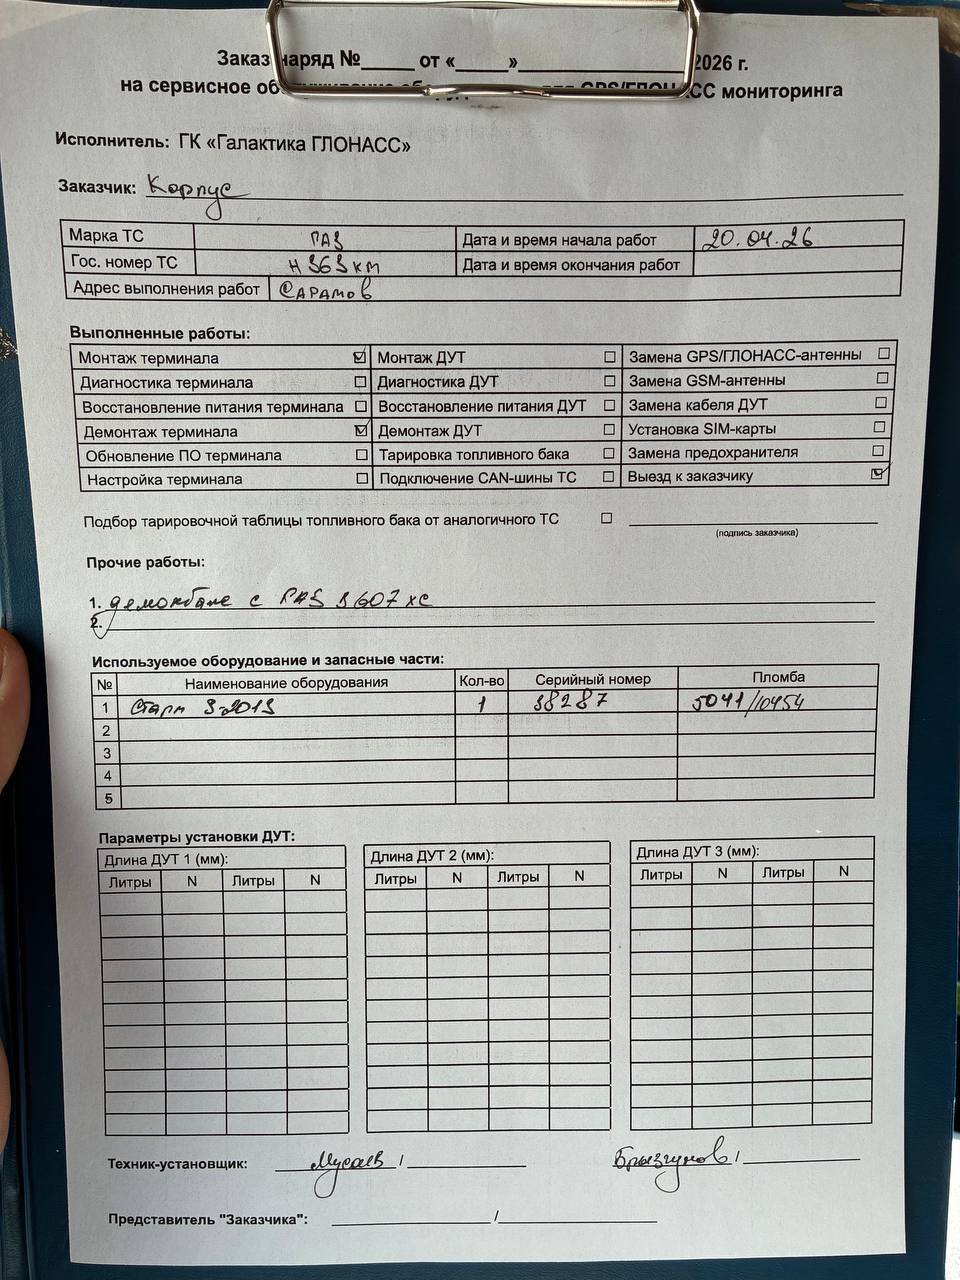 Заказ наряд №_____ от «_____»_____ 2026 г.
на сервисное GPS/ГЛОНАСС мониторинга
Исполнитель: ГК «Галактика ГЛОНАСС»
Заказчик: Корпус
Марка ТС ПАЗ Дата и время начала работ 20.04.26
Гос. номер ТС Н 363 КМ Дата и время окончания работ
Адрес выполнения работ Саратов
Выполненные работы:
Монтаж терминала ☑ Монтаж ДУТ ☐ Замена GPS/ГЛОНАСС-антенны ☐
Диагностика терминала ☐ Диагностика ДУТ ☐ Замена GSM-антенны ☐
Восстановление питания терминала ☐ Восстановление питания ДУТ ☐ Замена кабеля ДУТ ☐
Демонтаж терминала ☑ Демонтаж ДУТ ☐ Установка SIM-карты ☐
Обновление ПО терминала ☐ Тарировка топливного бака ☐ Замена предохранителя ☐
Настройка терминала ☐ Подключение CAN-шины ТС ☐ Выезд к заказчику ☑
Подбор тарировочной таблицы топливного бака от аналогичного ТС ☐
(подпись заказчика)
Прочие работы:
1. демонтаж с ПАЗ 607 хс
2.
Используемое оборудование и запасные части:
№ Наименование оборудования Кол-во Серийный номер Пломба
1 1 38287 5041/10454
2
3
4
5
Параметры установки ДУТ:
Длина ДУТ 1 (мм): Длина ДУТ 2 (мм): Длина ДУТ 3 (мм):
Литры N Литры N Литры N Литры N Литры N Литры N
Техник-установщик: Мусаев / Брызгунов /
Представитель "Заказчика": /